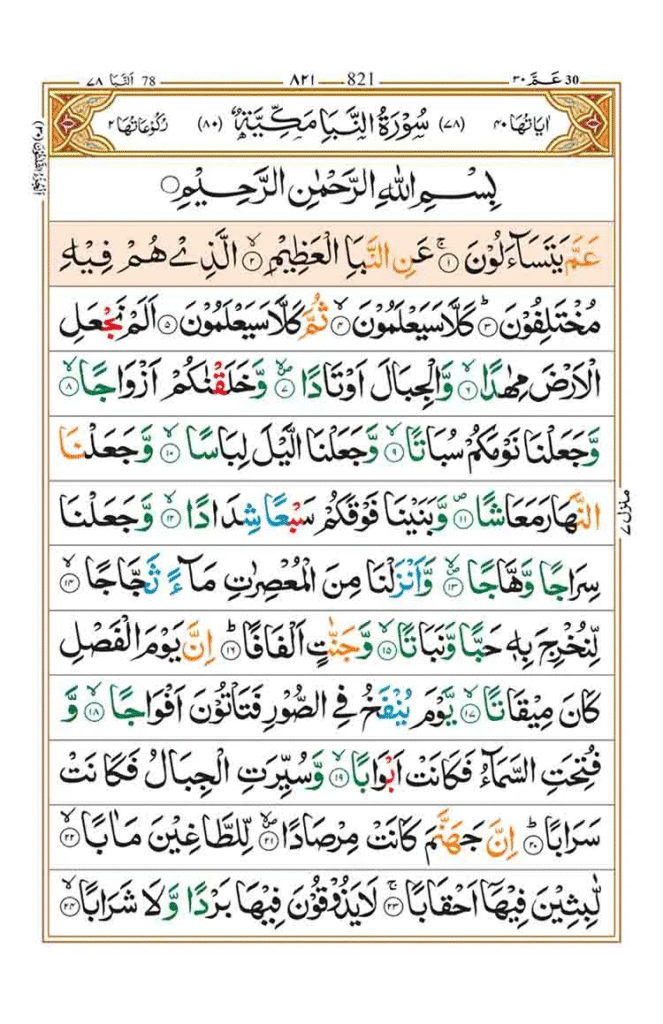 ٧٨ اَلنَّبَا 78 ٨٢١ 821 ٣٠ عَمَّ 30
اٰيَاتُهَا ٤٠ (٧٨) سُوْرَةُ النَّبَاِ مَكِّيَّةٌ (٨٠) رُكُوْعَاتُهَا ٢
بِسْمِ اللّٰهِ الرَّحْمٰنِ الرَّحِيْمِ
عَمَّ يَتَسَآءَلُوْنَ ۚ ١ عَنِ النَّبَاِ الْعَظِيْمِ ۙ ٢ الَّذِيْ هُمْ فِيْهِ
مُخْتَلِفُوْنَ ؕ ٣ كَلَّا سَيَعْلَمُوْنَ ۙ ٤ ثُمَّ كَلَّا سَيَعْلَمُوْنَ ٥ اَلَمْ نَجْعَلِ
الْاَرْضَ مِهٰدًا ۙ ٦ وَّالْجِبَالَ اَوْتَادًا ۪ۙ ٧ وَّخَلَقْنٰكُمْ اَزْوَاجًا ۙ ٨
وَّجَعَلْنَا نَوْمَكُمْ سُبَاتًا ۙ ٩ وَّجَعَلْنَا الَّيْلَ لِبَاسًا ۙ ١٠ وَّجَعَلْنَا
النَّهَارَ مَعَاشًا ۪ ١١ وَّبَنَيْنَا فَوْقَكُمْ سَبْعًا شِدَادًا ۙ ١٢ وَّجَعَلْنَا
سِرَاجًا وَّهَّاجًا ۪ۙ ١٣ وَّاَنْزَلْنَا مِنَ الْمُعْصِرٰتِ مَآءً ثَجَّاجًا ۙ ١٤
لِّنُخْرِجَ بِهٖ حَبًّا وَّنَبَاتًا ۙ ١٥ وَّجَنّٰتٍ اَلْفَافًا ؕ ١٦ اِنَّ يَوْمَ الْفَصْلِ
كَانَ مِيْقَاتًا ۙ ١٧ يَّوْمَ يُنْفَخُ فِي الصُّوْرِ فَتَاْتُوْنَ اَفْوَاجًا ۙ ١٨ وَّ
فُتِحَتِ السَّمَآءُ فَكَانَتْ اَبْوَابًا ۙ ١٩ وَّسُيِّرَتِ الْجِبَالُ فَكَانَتْ
سَرَابًا ؕ ٢٠ اِنَّ جَهَنَّمَ كَانَتْ مِرْصَادًا ۪ۙ ٢١ لِّلطَّاغِيْنَ مَاٰبًا ۙ ٢٢
لّٰبِثِيْنَ فِيْهَاۤ اَحْقَابًا ۚ ٢٣ لَا يَذُوْقُوْنَ فِيْهَا بَرْدًا وَّلَا شَرَابًا ۙ ٢٤
اَلْجُزْءُ الثَّلٰثُوْنَ (٣٠)
منزل ٧